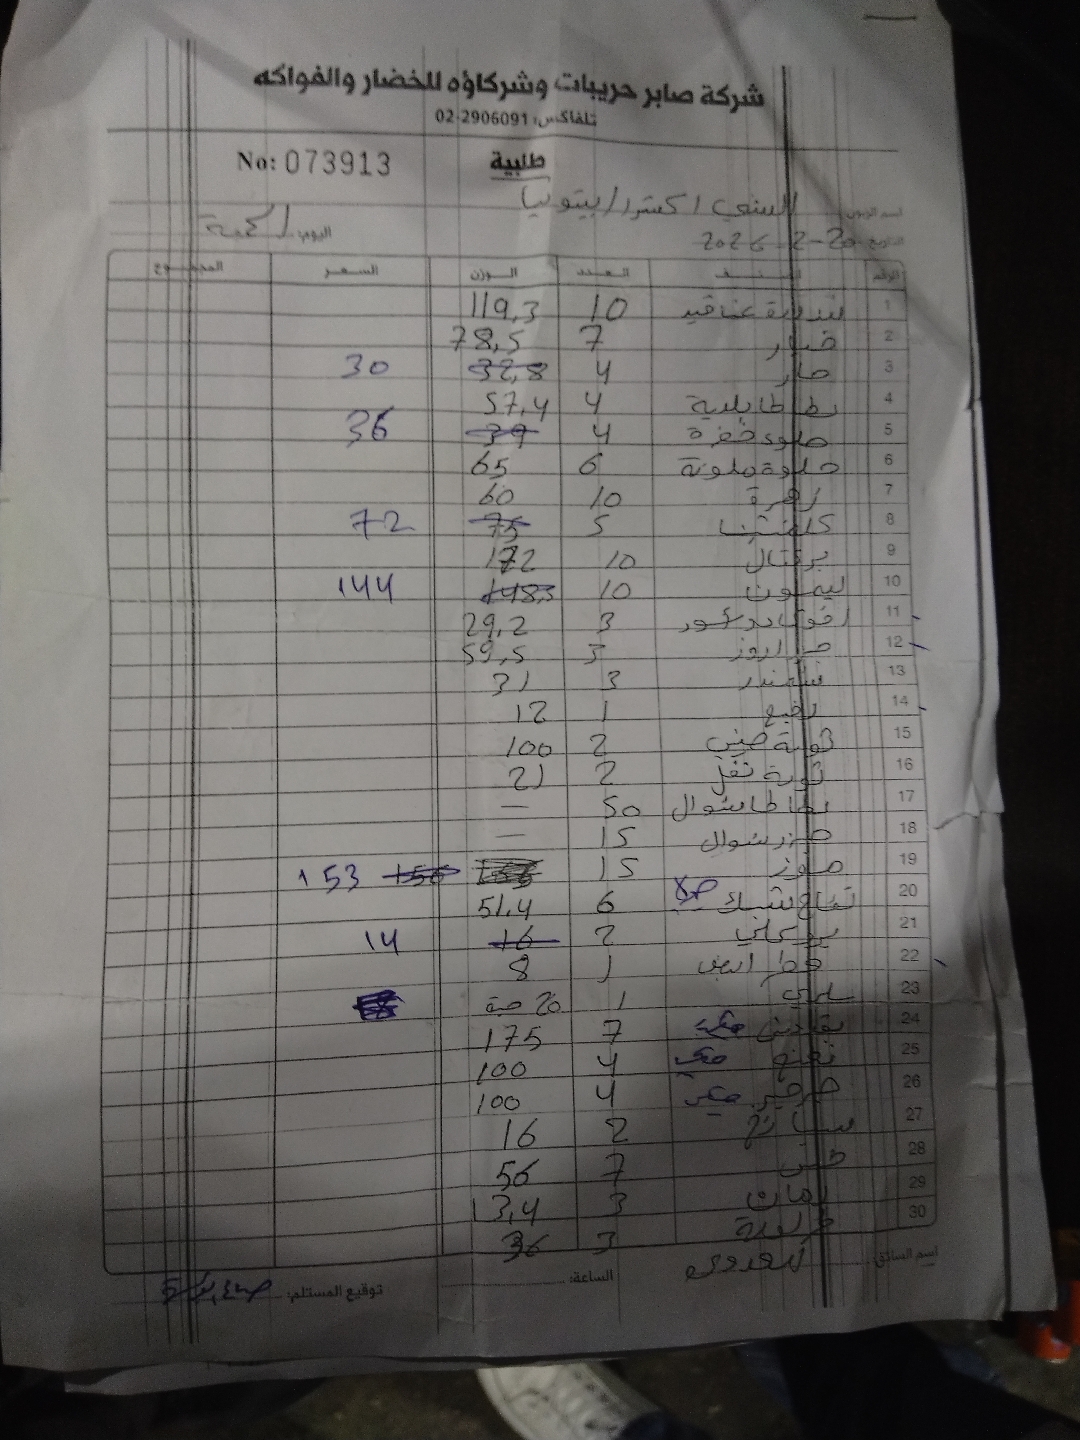 شركة صابر حريبات وشركاؤه للخضار والفواكه
تلفاكس: 02-2906091
No: 073913 طلبية
اسم الزبون: السني اكسترا / بيتونيا
التاريخ: 20-2-2026 اليوم: الجمعة
الرقم الصنف العدد الوزن السعر المجموع
1 بندورة عناقيد 10 119,3
2 خيار 7 78,5
3 حار 4 32,8 30
4 بطاطا بلدية 4 57,4
5 حلوة خضرة 4 39 36
6 حلوة ملونة 6 65
7 زهرة 10 60
8 كلمنتينا 5 75 72
9 برتقال 10 172
10 ليمون 10 148,3 144
11 افوكادو 3 29,2
12 3 59,5
13 شمندر 3 31
14 1 12
15 ثومة صيني 2 100
16 ثومة تفل 2 21
17 بطاطا شوال 50 —
18 جزر شوال 15 —
19 موز 15 156 153
20 تفاح 6 51,4
21 2 16 14
22 ابيض 1 8
23 سلري 1 20 حبة
24 بقدونس 7 175
25 نعنع 4 100
26 جرجير 4 100
27 سبانخ 2 16
28 خس 7 56
29 رمان 3 13,4
30 3 36
اسم السائق: الساعة: توقيع المستلم: